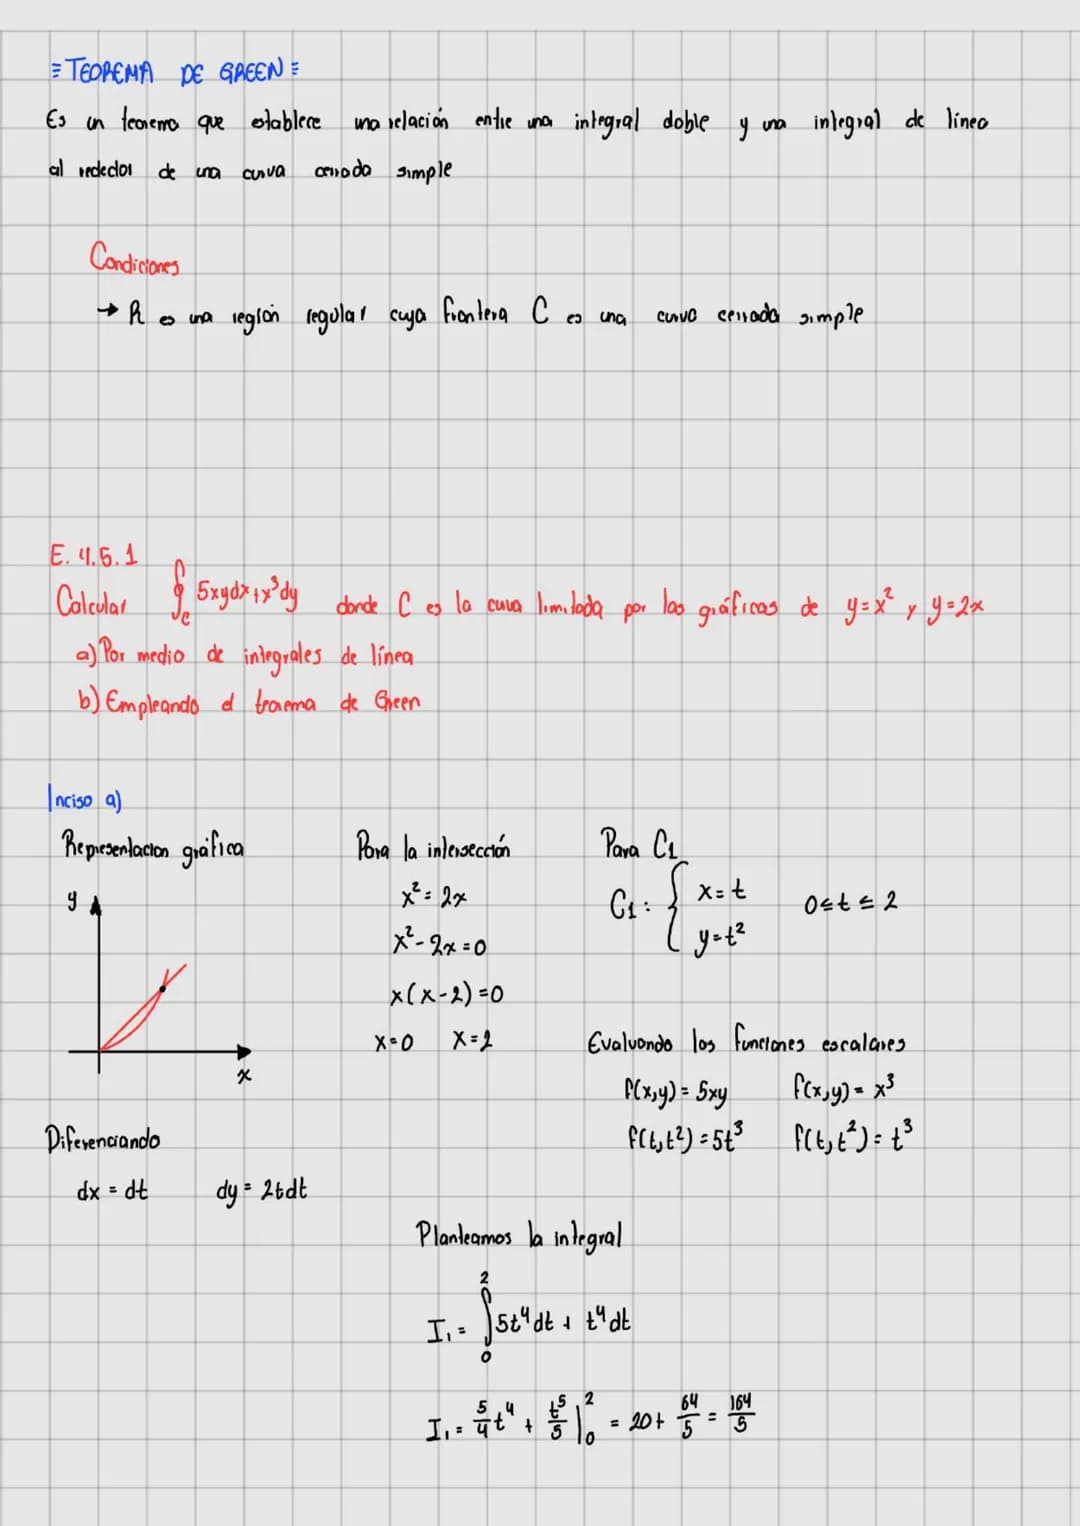 ≡ TEOREMA DE GREEN ≡
Es un teorema que establece una relación entre una integral doble y una integral de linea
al rededor de una curva cerrada simple
Condiciones
→ R es una región regular cuya frontera C es una curva cerrada simple
E. 4.5.1
Calcular ∮c 5xydx+x³dy donde C es la curva limitada por las gráficas de y=x² y y=2x
a) Por medio de integrales de línea
b) Empleando el teorema de Green
Inciso a)
Representacion gráfica
y
x
Para la intersección
x² = 2x
x² - 2x = 0
x(x-2) = 0
x=0 x=2
Para C1
C1: { x=t 0≤t≤2
y=t²
Evaluando las funciones escalares
f(x,y) = 5xy f(x,y) = x³
f(t,t²) = 5t³ f(t,t²) = t³
Diferenciando
dx = dt dy = 2tdt
Planteamos la integral
I₁ = ∫₀² 5t⁴dt + t⁴dt
I₁ = 5/4 t⁴ + t⁵/5 |₀² = 20 + 64/5 = 164/5